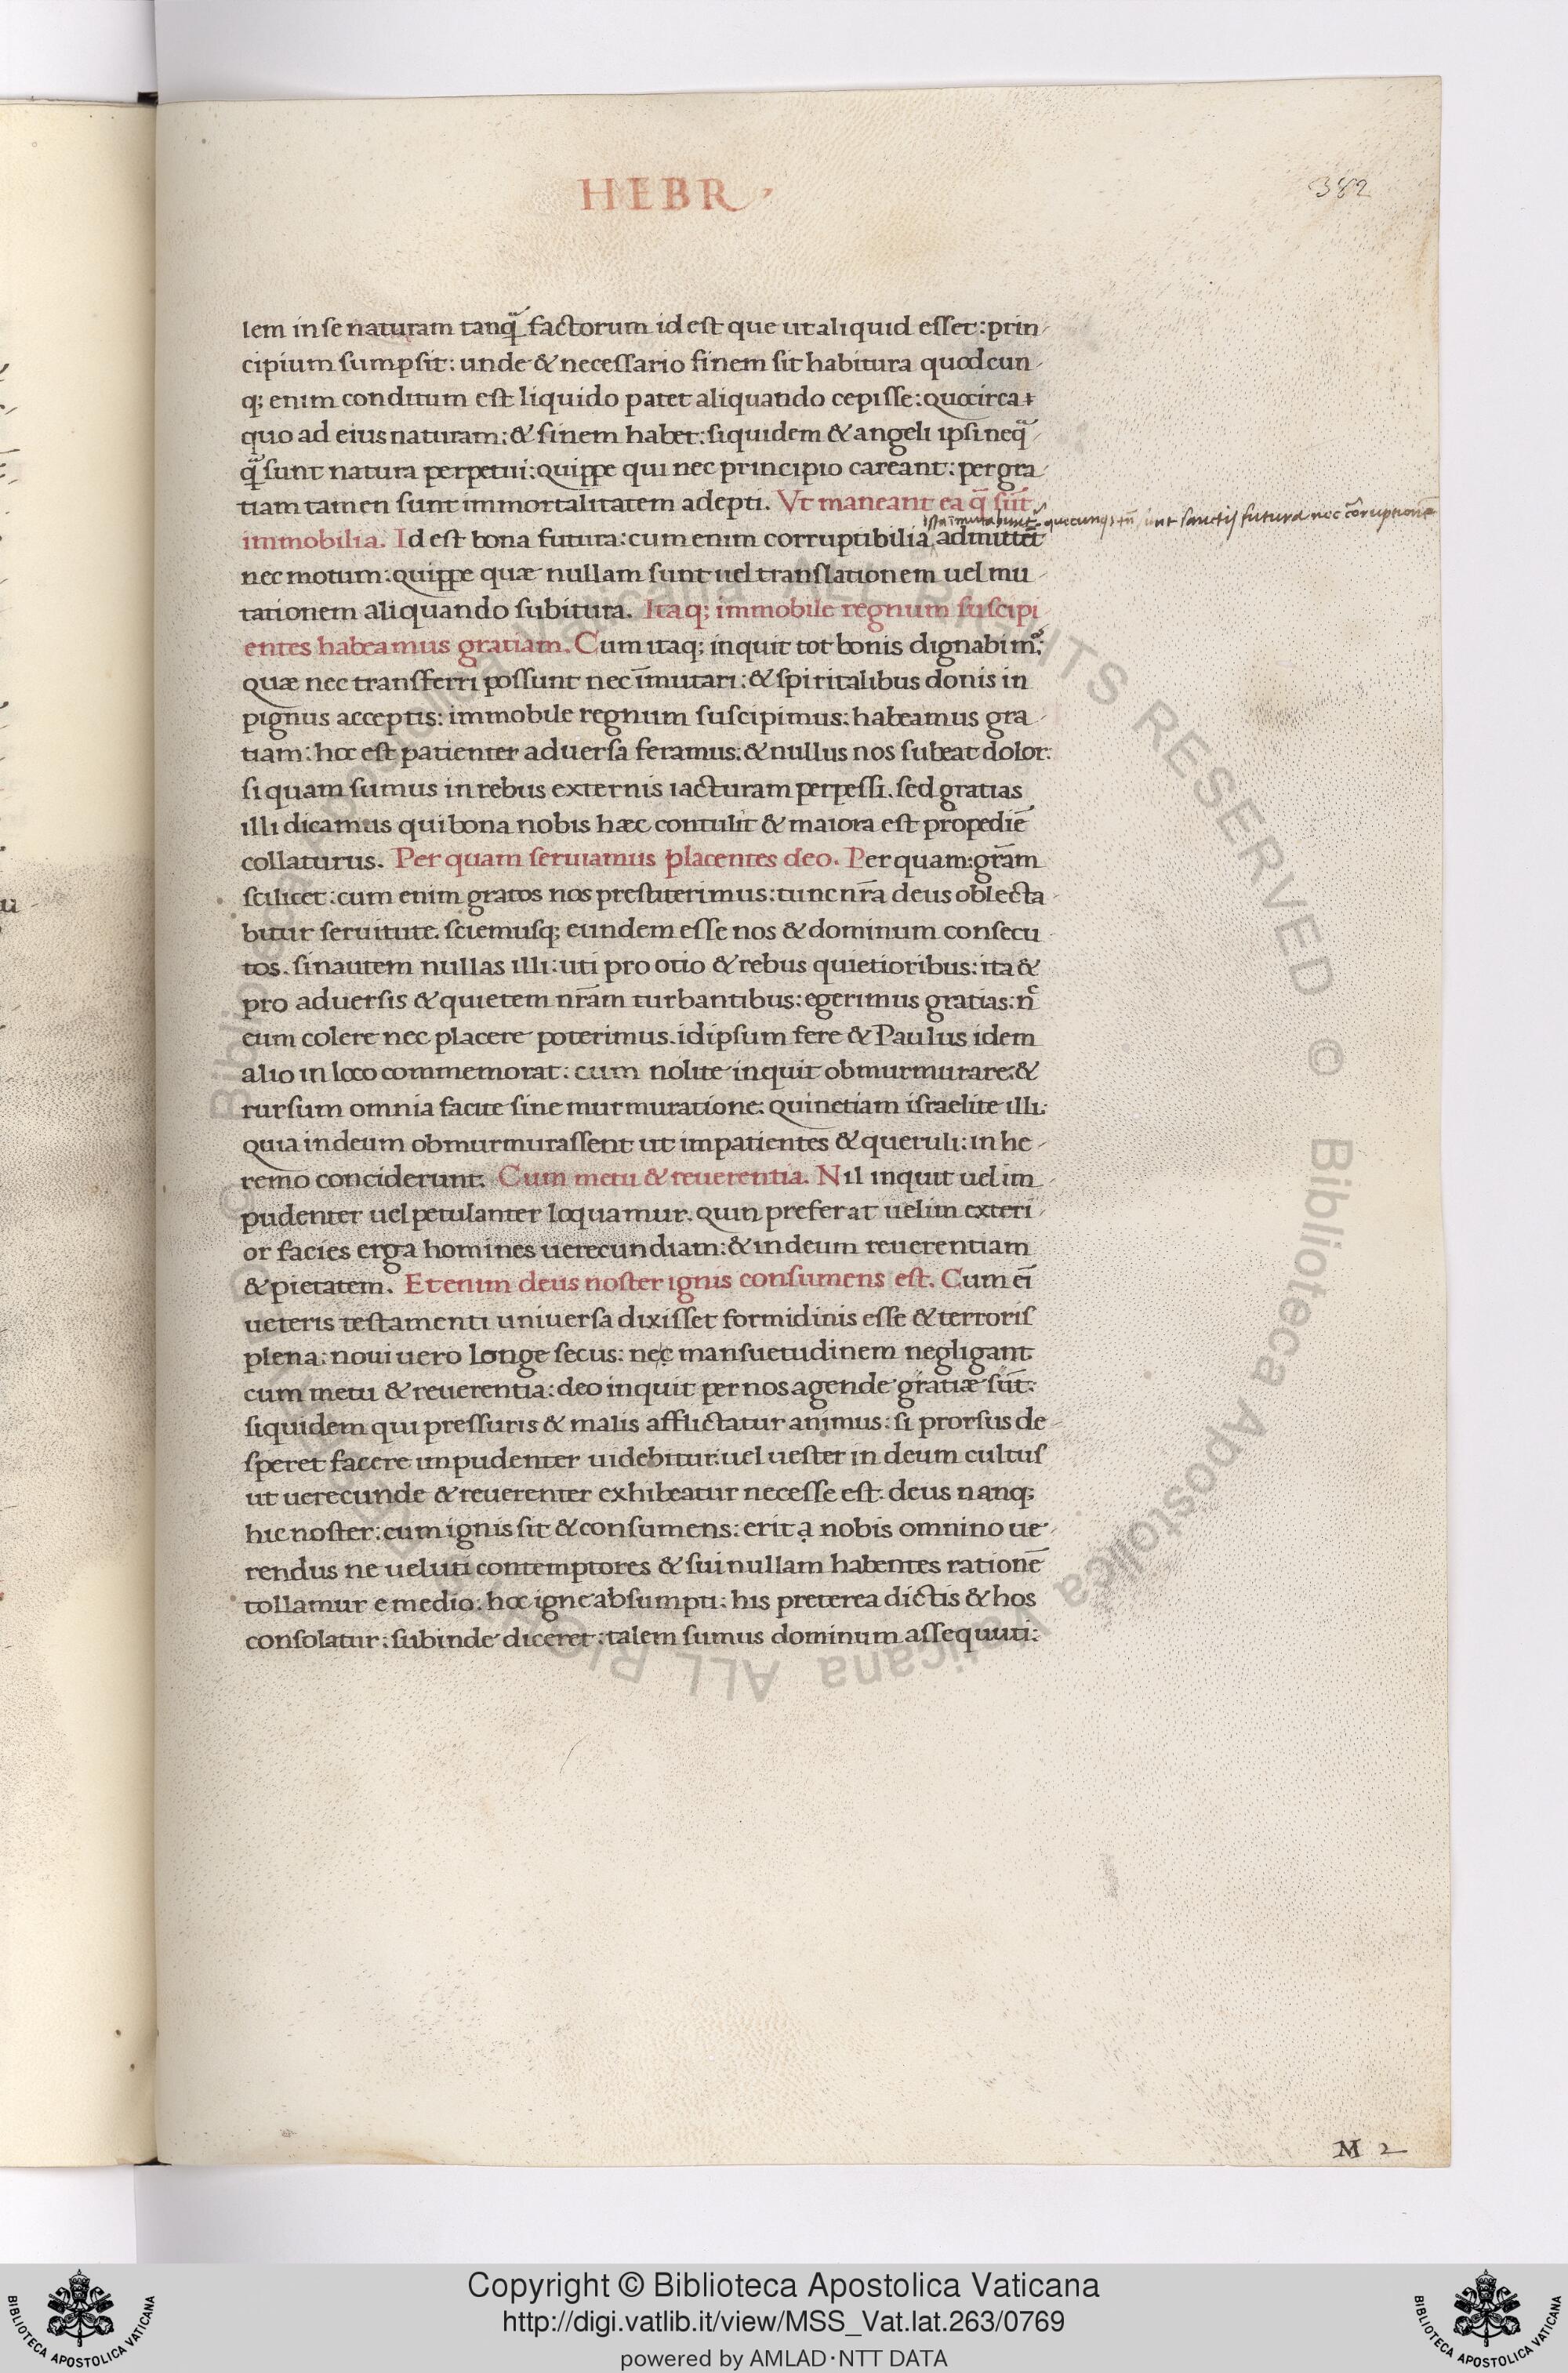 HEBR
382
lem in se naturam tanq̃ factorum id est que ut aliquid esset: prin
cipium sumpsit: unde & necessario finem sit habitura quodcun
q; enim conditum est liquido patet aliquando cepisse: quocirca
quo ad eius naturam: & finem habet: siquidem & angeli ipsi neq̃
q̃ sunt natura perpetui: quippe qui nec principio careant: per gra
tiam tamen sunt immortalitatem adepti. Vt maneant ea q̄ sūt
ista īmutabunt~ quecunq; tñ sunt sanctis futura nec corruptionē
immobilia. Id est bona futura: cum enim corruptibilia admittēt
nec motum: quippe quæ nullam sunt uel translationem uel mu
tationem aliquando subitura. Itaq; immobile regnum suscipi
entes habeamus gratiam. Cum itaq; inquit tot bonis dignabim᷒:
quæ nec transferri possunt nec īmutari: & spiritalibus donis in
pignus acceptis: immobile regnum suscipimus: habeamus gra
tiam: hoc est patienter aduersa feramus. & nullus nos subeat dolor:
si quam sumus in rebus externis iacturam perpessi. sed gratias
illi dicamus qui bona nobis hæc contulit & maiora est propediē
collaturus. Per quam seruiamus placentes deo. Per quam: gr̄am
scilicet: cum enim gratos nos prestiterimus: tunc nr̄a deus oblecta
bitur seruitute. sciemusq; eundem esse nos & dominum consecu
tos. sinautem nullas illi: uti pro otio & rebus quietioribus: ita &
pro aduersis & quietem nr̄am turbantibus: egerimus gratias: nc̄
eum colere nec placere poterimus. idipsum fere & Paulus idem
alio in loco commemorat: cum nolite inquit obmurmurare: &
rursum omnia facite sine murmuratione: quinetiam israelite illi:
quia in deum obmurmurassent ut impatientes & queruli: in he
remo conciderunt. Cum metu & reuerentia. Nil inquit uel im
pudenter uel petulanter loquamur. quin preferat uelim exteri
or facies erga homines uerecundiam: & in deum reuerentiam
& pietatem. Etenim deus noster ignis consumens est. Cum eī
ueteris testamenti uniuersa dixisset formidinis esse & terroris
plena: noui uero longe secus: nec mansuetudinem negligant
cum metu & reuerentia: deo inquit per nos agende gratiæ sūt:
siquidem qui pressuris & malis afflictatur animus: si prorsus de
speret facere impudenter uidebitur: uel uester in deum cultus
ut uerecunde & reuerenter exhibeatur necesse est: deus nanq;
hic noster: cum ignis sit & consumens: erit a nobis omnino ue
rendus ne ueluti contemptores & sui nullam habentes rationē
tollamur e medio: hoc igne absumpti: his preterea dictis & hos
consolatur: subinde diceret: talem sumus dominum assequuti:
M 2
Copyright © Biblioteca Apostolica Vaticana
http://digi.vatlib.it/view/MSS_Vat.lat.263/0769
powered by AMLAD·NTT DATA